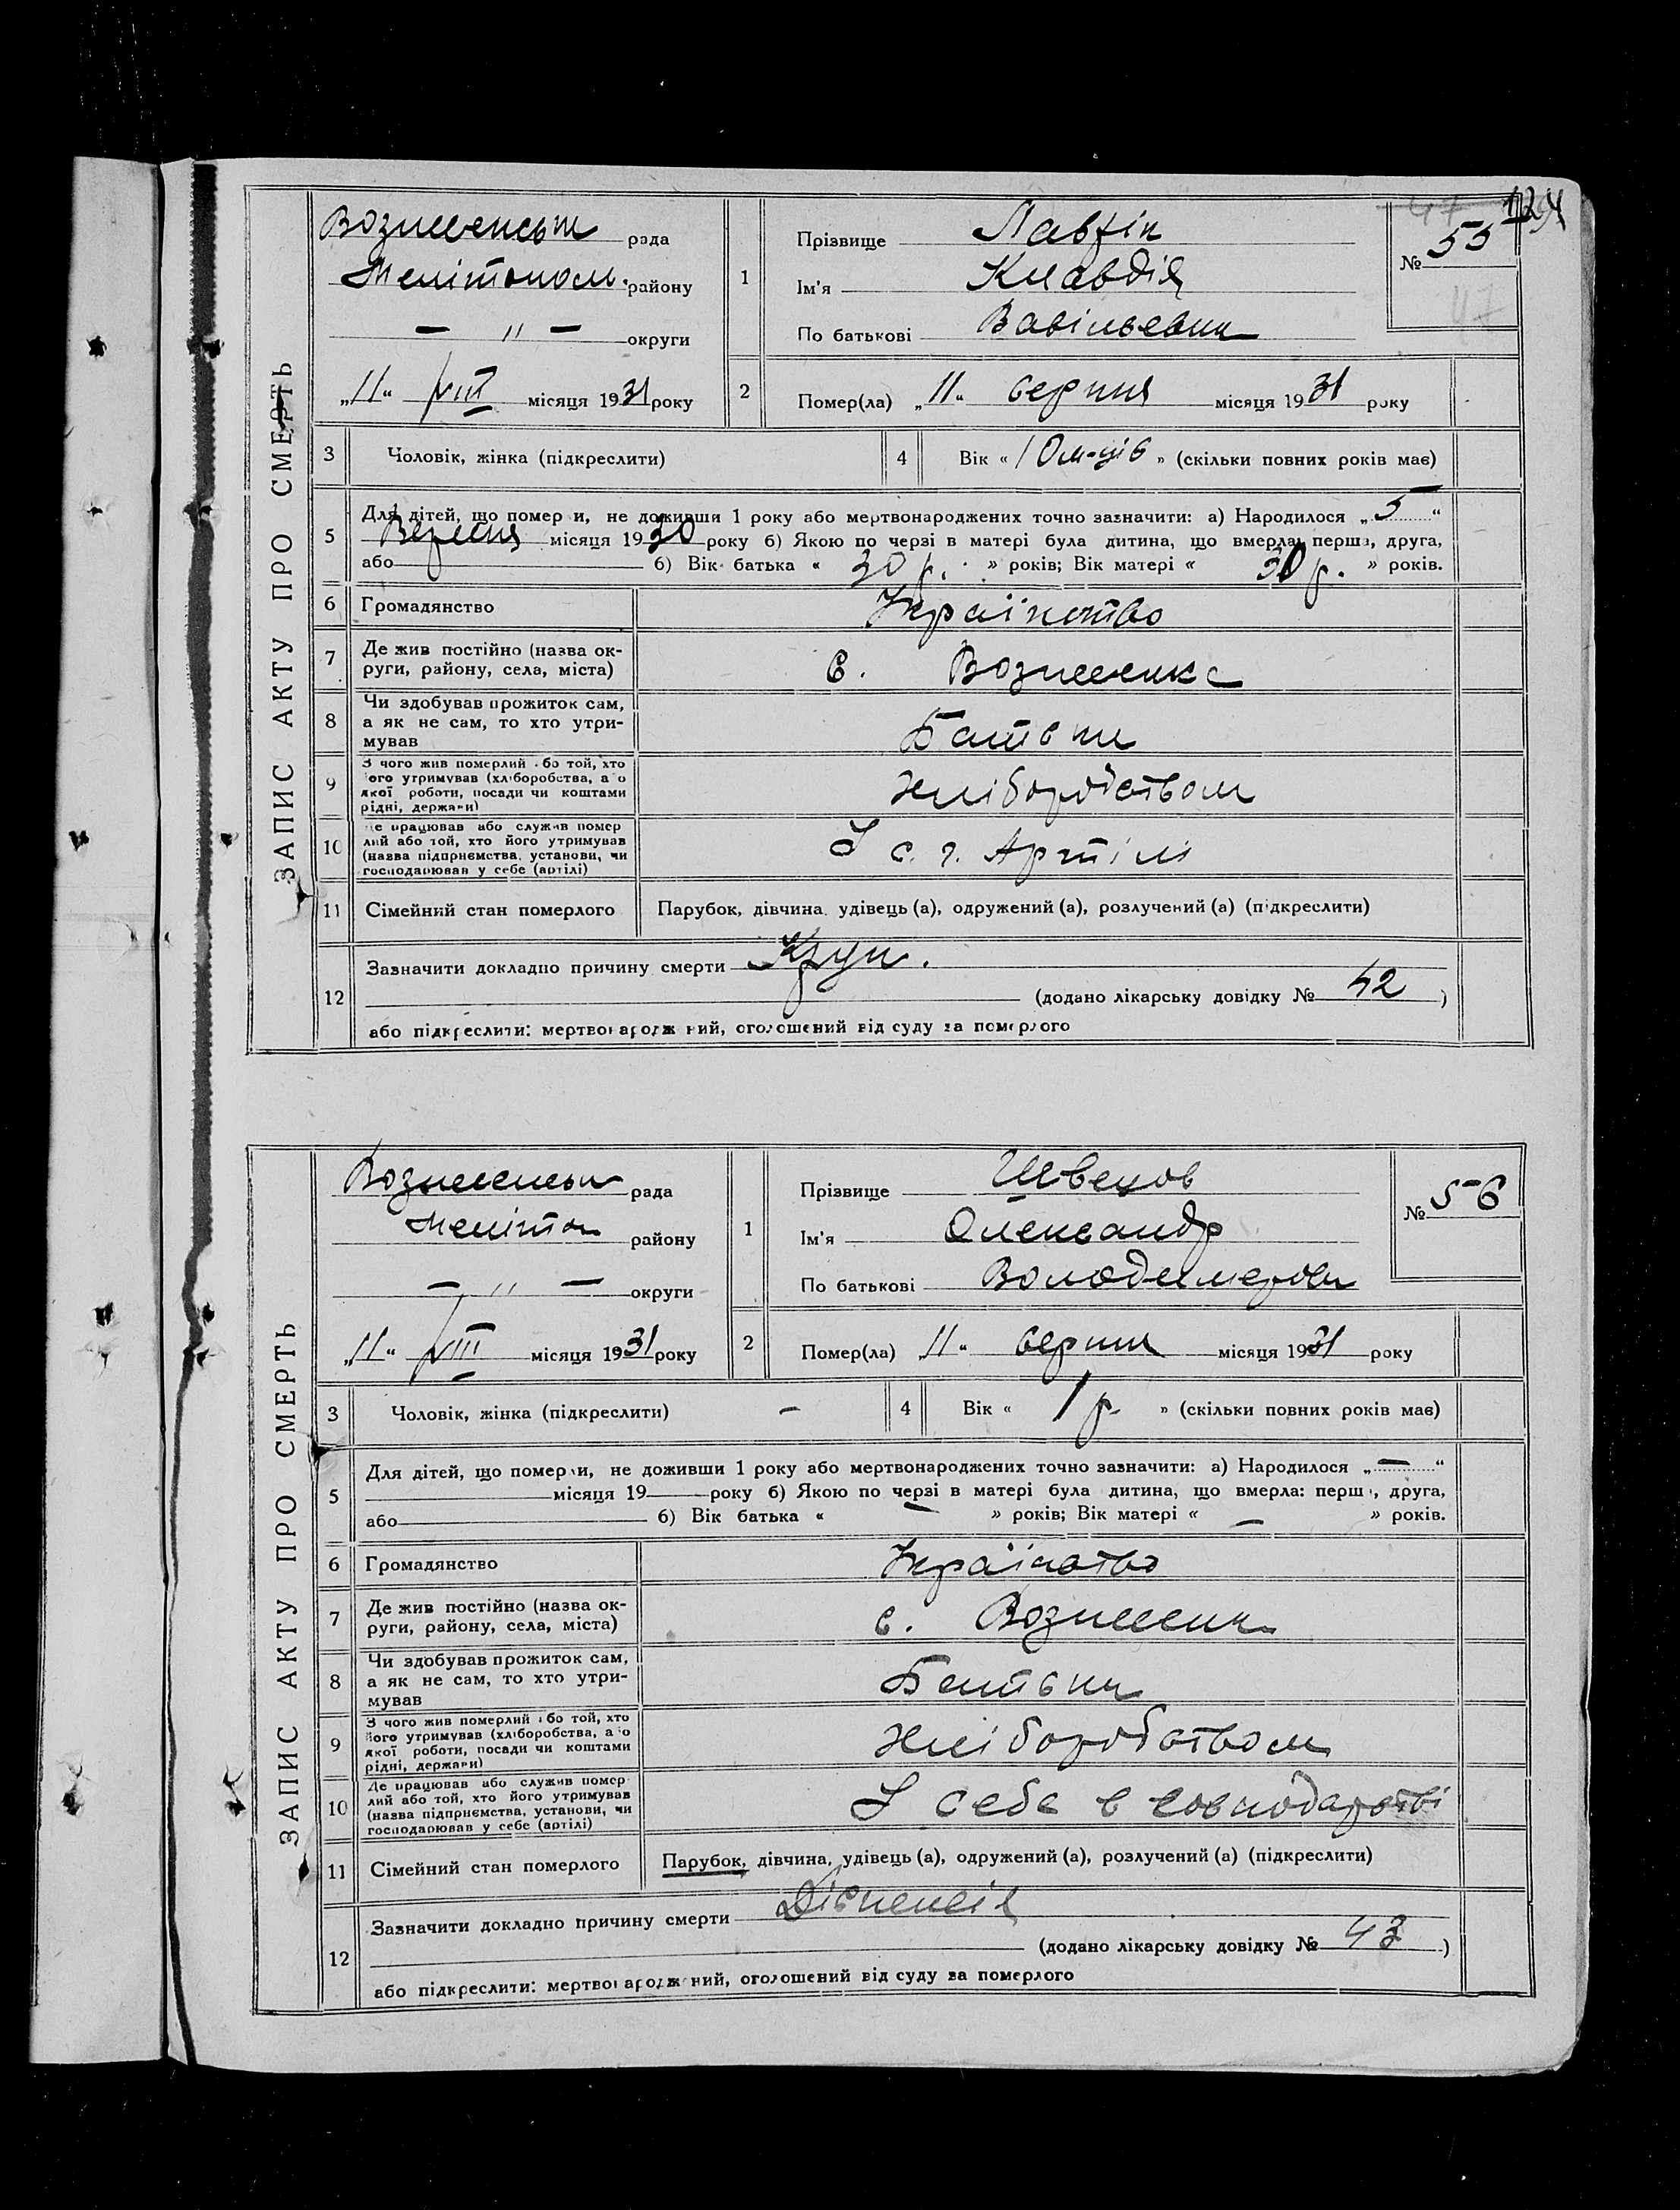 124
ЗАПИС АКТУ ПРО СМЕРТЬ
Вознесенськ рада
Мелітопол. району
— " — округи
„11“ VIII місяця 1931 року
1
Прізвище
Ім'я Клавдія
По батькові
№ 55
47
2
Помер(ла) „11“ серпня місяця 1931 року
3 Чоловік, жінка (підкреслити)
4 Вік « 10 м-ців » (скільки повних років має)
5 Для дітей, що померли, не доживши 1 року або мертвонароджених точно зазначити: а) Народилося „5“
Вересня місяця 1930 року б) Якою по черзі в матері була дитина, що вмерла: перша, друга,
або б) Вік батька « 30 р. » років; Вік матері « 30 р. » років.
6 Громадянство Українство
7 Де жив постійно (назва ок-
руги, району, села, міста)
с. Вознесенка
8 Чи здобував прожиток сам,
а як не сам, то хто утри-
мував
Батьки
9 З чого жив померлий або той, хто
його утримував (хліборобства, або
якої роботи, посади чи коштами
рідні, держави)
Хліборобством
10 Де працював або служив помер
лий або той, хто його утримував
(назва підприємства, установи, чи
господарював у себе (артілі)
У с. г. Артілі
11 Сімейний стан померлого Парубок, дівчина, удівець (а), одружений (а), розлучений (а) (підкреслити)
12 Зазначити докладно причину смерти Круп.
(додано лікарську довідку № 42 )
або підкреслити: мертвонароджений, оголошений від суду за померлого
ЗАПИС АКТУ ПРО СМЕРТЬ
Вознесенськ рада
Меліто району
— " — округи
„11“ VIII місяця 1931 року
1
Прізвище Швецов
Ім'я Олександр
По батькові Володимеров
№ 56
2
Помер(ла) „11“ серпня місяця 1931 року
3 Чоловік, жінка (підкреслити) –
4 Вік « 1 р. » (скільки повних років має)
5 Для дітей, що померли, не доживши 1 року або мертвонароджених точно зазначити: а) Народилося „—“
місяця 19 року б) Якою по черзі в матері була дитина, що вмерла: перша, друга,
або б) Вік батька « – » років; Вік матері « – » років.
6 Громадянство Україно тво
7 Де жив постійно (назва ок-
руги, району, села, міста)
с. Вознесенк
8 Чи здобував прожиток сам,
а як не сам, то хто утри-
мував
Батьки
9 З чого жив померлий або той, хто
його утримував (хліборобства, або
якої роботи, посади чи коштами
рідні, держави)
Хліборобством
10 Де працював або служив помер
лий або той, хто його утримував
(назва підприємства, установи, чи
господарював у себе (артілі)
У себе в господарстві
11 Сімейний стан померлого Парубок, дівчина, удівець (а), одружений (а), розлучений (а) (підкреслити)
12 Зазначити докладно причину смерти Діспепсія
(додано лікарську довідку № 43 )
або підкреслити: мертвонароджений, оголошений від суду за померлого